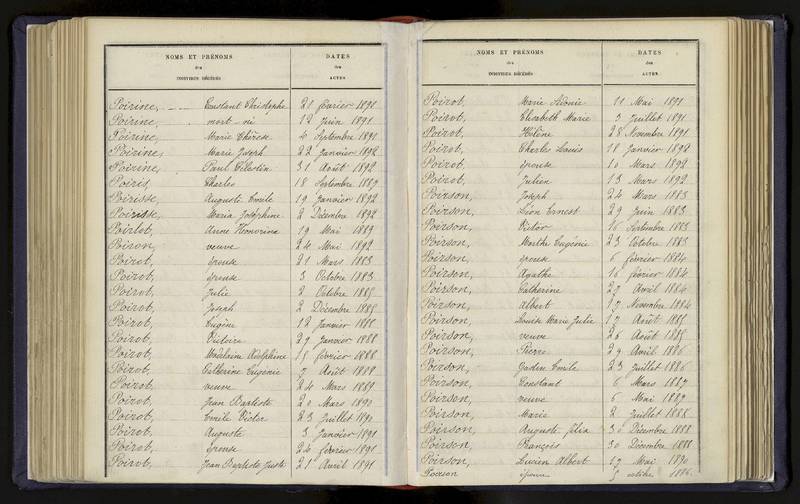 NOMS ET PRÉNOMS
des
INDIVIDUS DÉCÉDÉS
DATES
des
ACTES
Poirine, Constant Christophe 21 février 1891
Poirine, mort-né 12 Juin 1891
Poirine, Marie Thérèse 4 Septembre 1891
Poirine, Marie Joseph 22 Janvier 1892
Poirine, Paul Célestin 31 Août 1892
Poiris, Charles 18 Septembre 1889
Poirisse, Auguste Emile 19 Janvier 1892
Poirisse, Maria Joséphine 2 Décembre 1892
Poirlot, Anne Honorine 19 Mai 1889
Poiron, veuve 24 Mai 1892
Poirot, épouse 21 Mars 1883
Poirot, épouse 3 Octobre 1883
Poirot, Julie 2 Octobre 1885
Poirot, Joseph 2 Décembre 1885
Poirot, Eugène 12 Janvier 1888
Poirot, Victoire 29 Janvier 1888
Poirot, Adolphine 15 février 1888
Poirot, Catherine Eugénie 7 Août 1888
Poirot, veuve 24 Mars 1889
Poirot, Jean Baptiste 20 Mars 1890
Poirot, Emile Victor 23 Juillet 1890
Poirot, Auguste 3 Janvier 1891
Poirot, épouse 26 février 1891
Poirot, Jean Baptiste Juste 21 Avril 1891
NOMS ET PRÉNOMS
des
INDIVIDUS DÉCÉDÉS
DATES
des
ACTES
Poirot, Marie 11 Mai 1891
Poirot, Elisabeth Marie 3 Juillet 1891
Poirot, Hélène 28 Novembre 1891
Poirot, Charles Louis 18 Janvier 1892
Poirot, épouse 10 Mars 1892
Poirot, Julien 13 Mars 1892
Poirson, Joseph 24 Mars 1883
Poirson, Léon Ernest 29 Juin 1883
Poirson, Victor 16 Septembre 1883
Poirson, Marthe Eugénie 23 Octobre 1883
Poirson, épouse 6 février 1884
Poirson, Agathe 16 février 1884
Poirson, Catherine 27 Avril 1884
Poirson, Albert 17 Novembre 1884
Poirson, Louise Marie Julie 17 Août 1885
Poirson, veuve 26 Août 1885
Poirson, Pierre 29 Avril 1886
Poirson, Emile 23 Juillet 1886
Poirson, Constant 6 Mars 1887
Poirson, veuve 6 Mai 1887
Poirson, Marie 2 Juillet 1888
Poirson, Auguste félix 30 Décembre 1888
Poirson, François 30 Décembre 1888
Poirson, Lucien Albert 17 Mai 1890
Poirson épouse octobre 1886